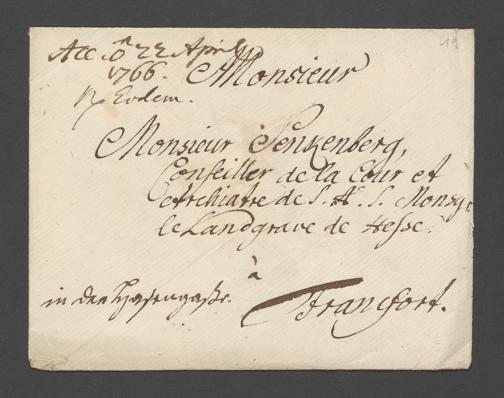 Acc. d. 22 April
1766.
Rp Eodem.
Monsieur
Monsieur Senkenberg,
Conseiller de la Cour et
Archiatre de S. A. S. Monsgr
le Landgrave de Hesse.
à
in der Hasengasse.
Francfort.
19